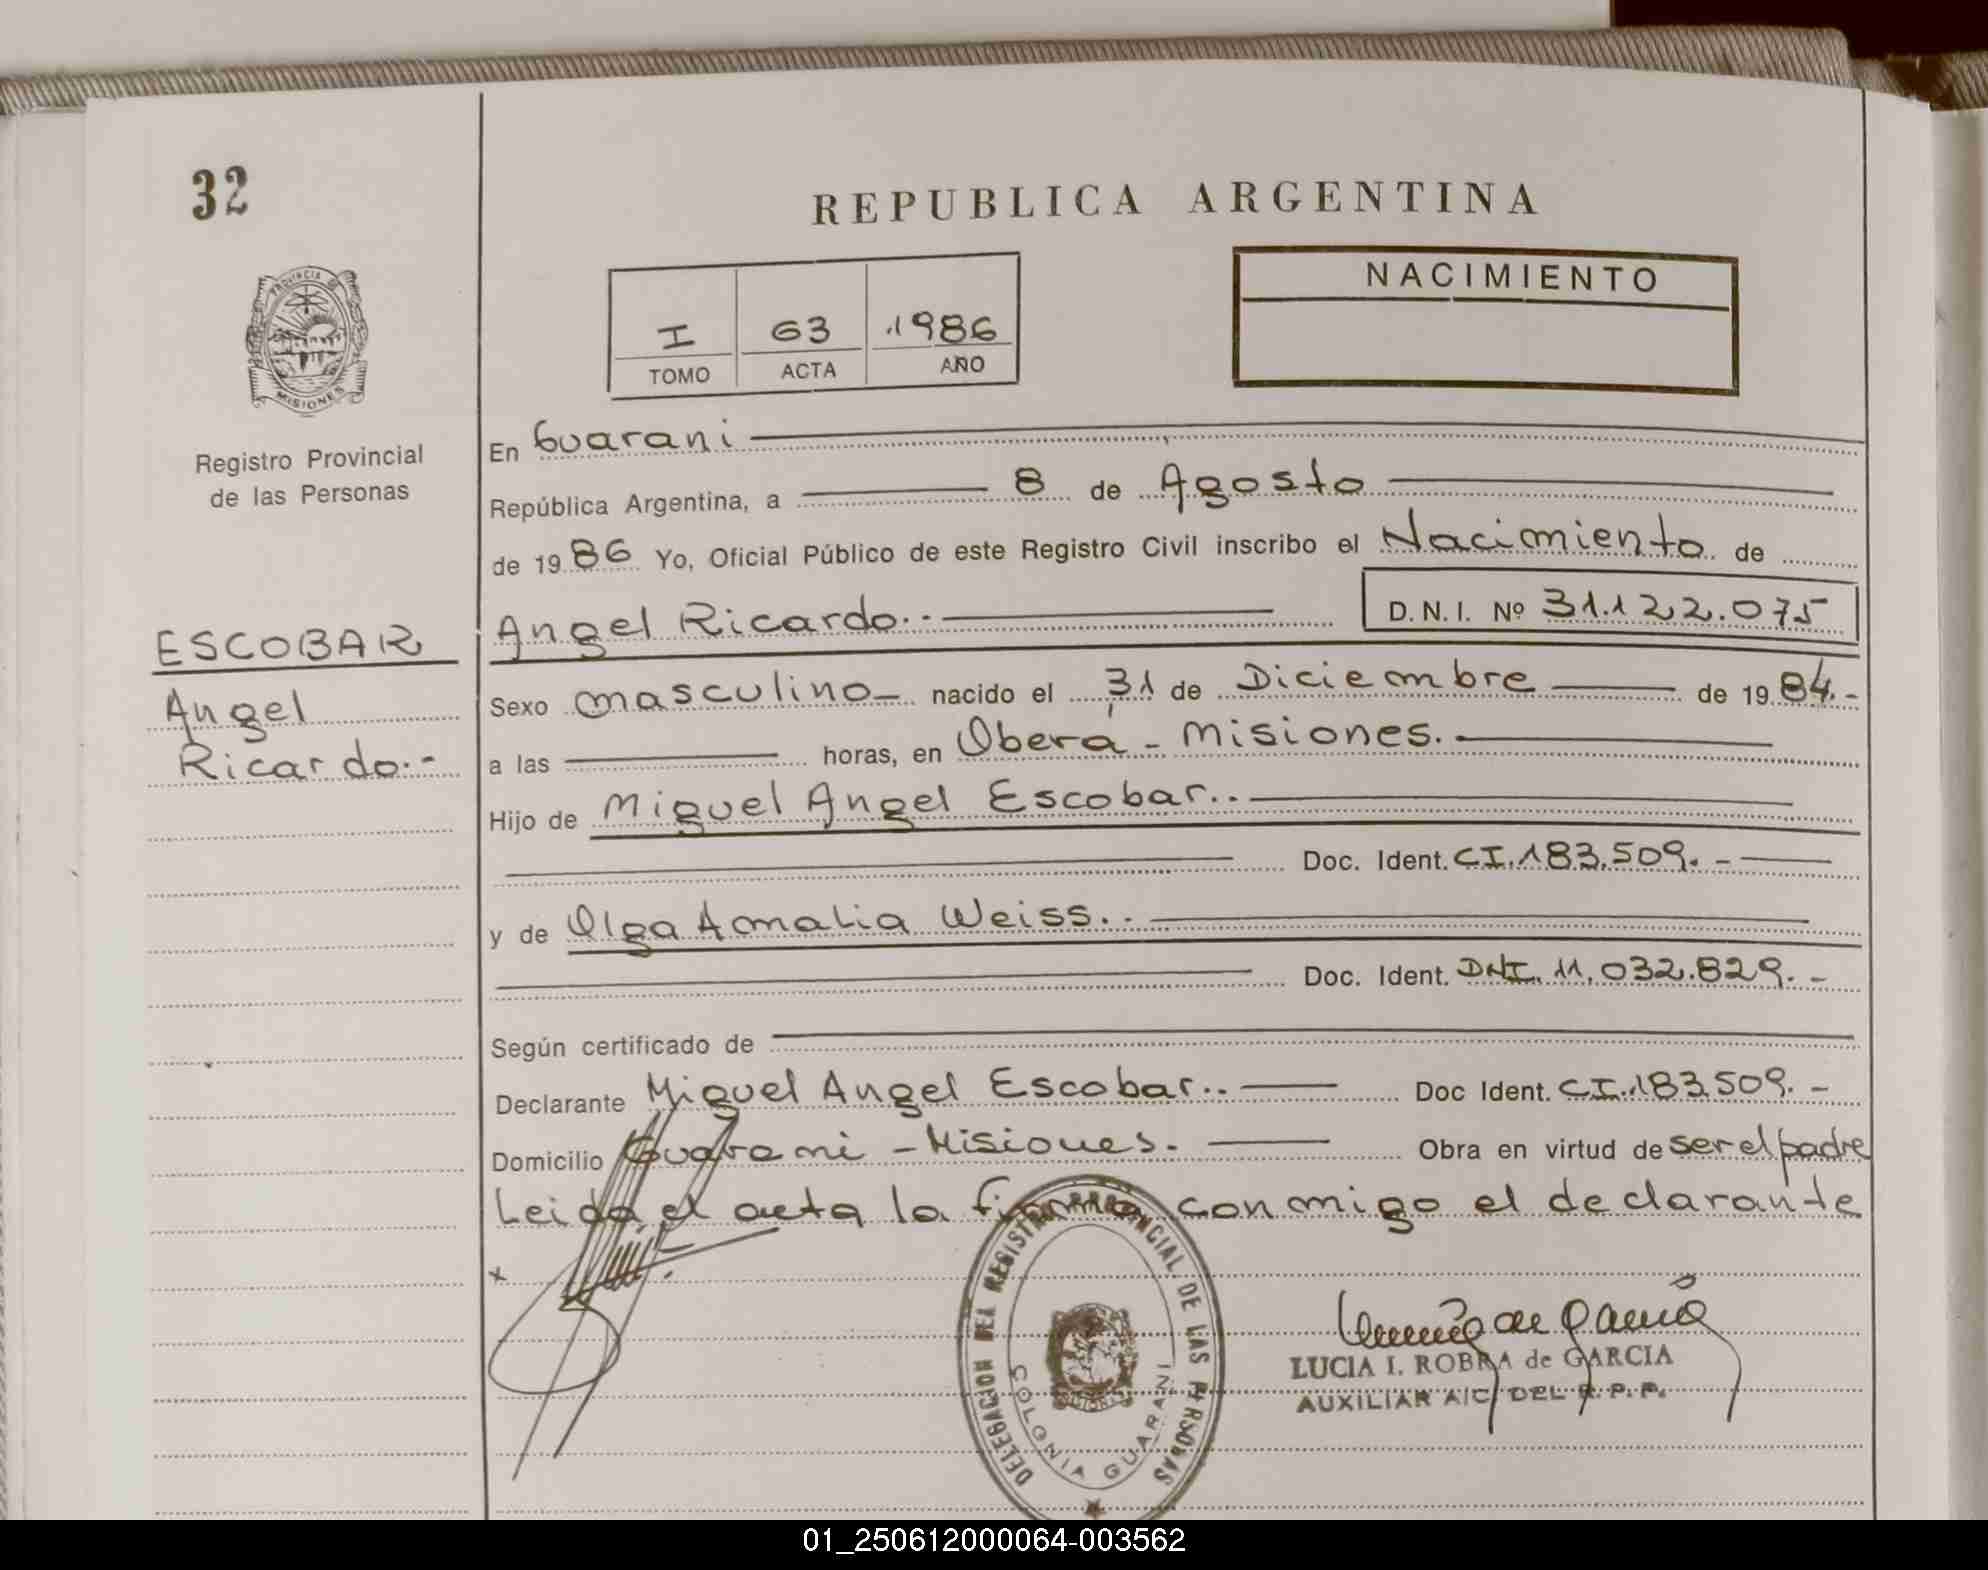 32
REPUBLICA ARGENTINA
PROVINCIA DE
MISIONES
Registro Provincial
de las Personas
I 63 1986
TOMO ACTA AÑO
NACIMIENTO
En Guarani
República Argentina, a 8 de Agosto
de 1986 Yo, Oficial Público de este Registro Civil inscribo el Nacimiento de
ESCOBAR
Angel
Ricardo.-
Angel Ricardo..- D.N.I. Nº 31.122.075
Sexo masculino- nacido el 31 de Diciembre de 1984.-
a las horas, en Oberá - Misiones.
Hijo de Miguel Angel Escobar..
Doc. Ident. CI.183.509.-
y de Olga Amalia Weiss..
Doc. Ident. DNI. 11.032.829.-
Según certificado de
Declarante Miguel Angel Escobar.. Doc Ident. CI.183.509.-
Domicilio Guarani - Misiones. Obra en virtud de ser el padre
Leida el acta la firma conmigo el declarante
x
DELEGACION DEL REGISTRO PROVINCIAL DE LAS PERSONAS
COLONIA GUARANI
MISIONES
LUCIA I. ROBRA de GARCIA
AUXILIAR A/C DEL R.P.P.
01_250612000064-003562